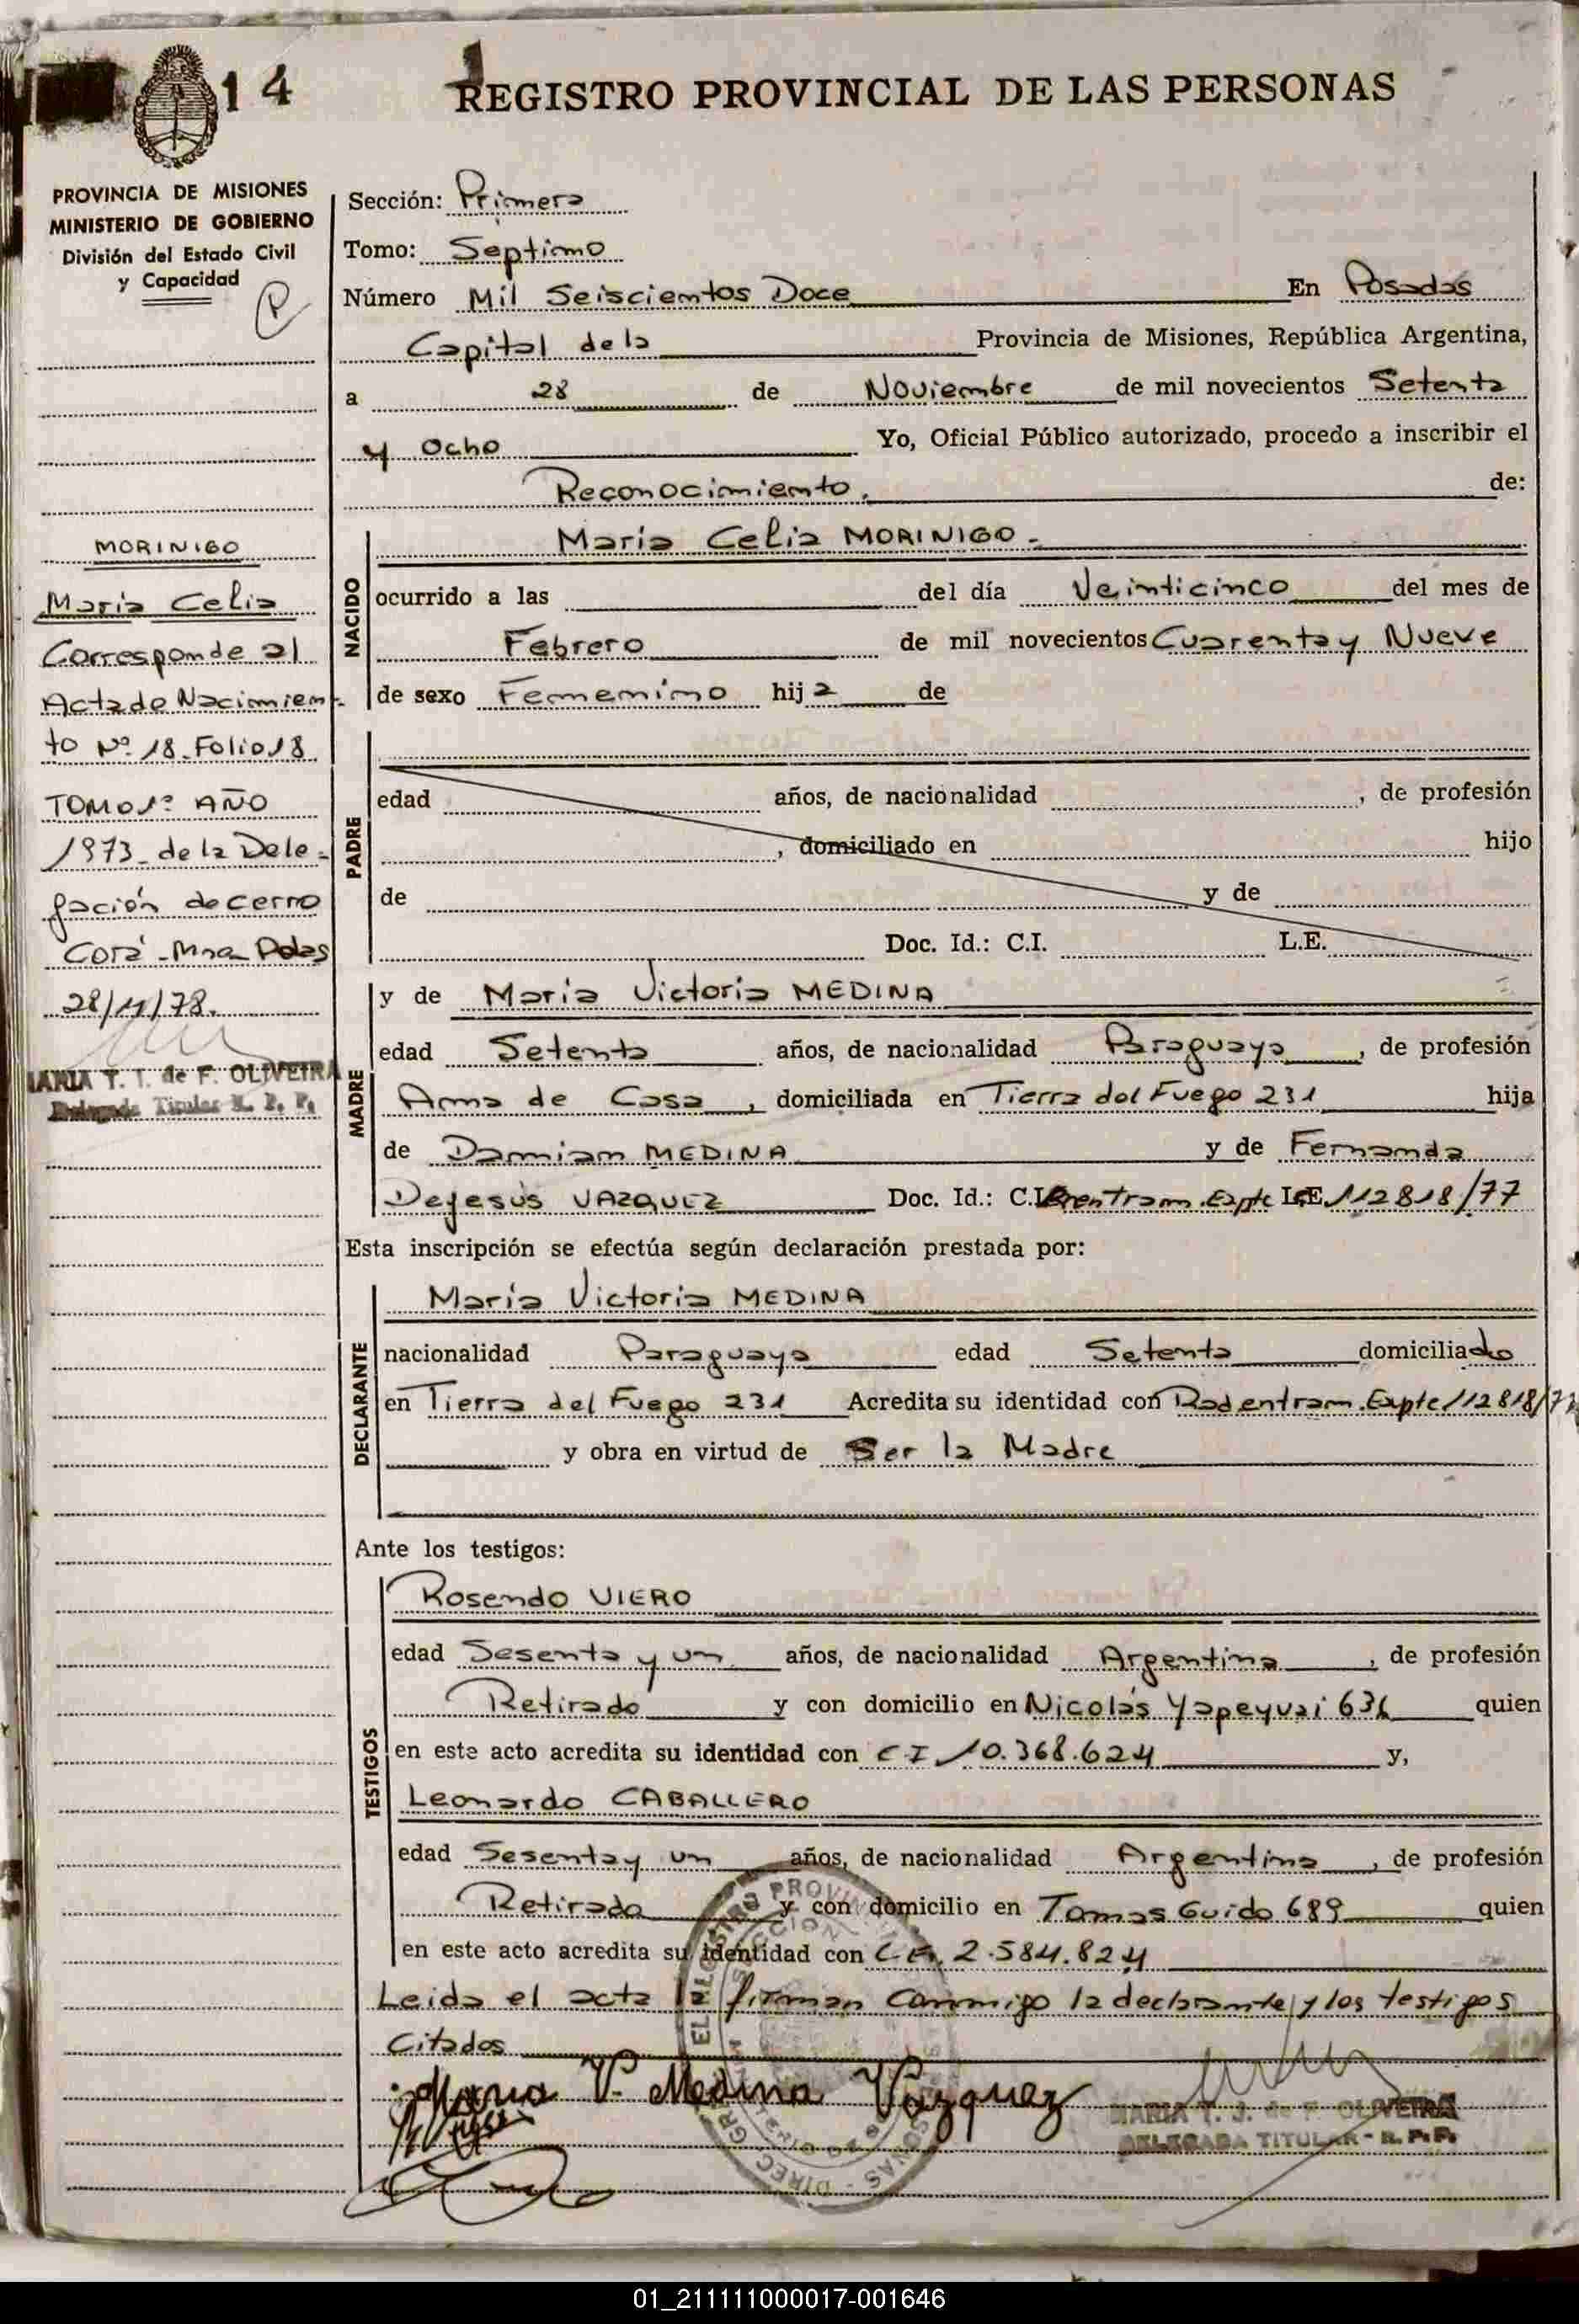 14
REGISTRO PROVINCIAL DE LAS PERSONAS
PROVINCIA DE MISIONES
MINISTERIO DE GOBIERNO
División del Estado Civil
y Capacidad
P
MORINIGO
María Celia
Corresponde al
Acta de Nacimien-
to Nº 18 Folio 18
TOMO 1º AÑO
1973 de la Dele-
gación de Cerro
Corá - Mnes Pdas
28/11/78.
MARIA T. J. de F. OLIVEIRA
Delegada Titular R. P. P.
Sección: Primera
Tomo: Septimo
Número Mil Seiscientos Doce En Posadas
Capital de la Provincia de Misiones, República Argentina,
a 28 de Noviembre de mil novecientos Setenta
y Ocho Yo, Oficial Público autorizado, procedo a inscribir el
Reconocimiento, de:
NACIDO
María Celia MORINIGO.-
ocurrido a las del día Veinticinco del mes de
Febrero de mil novecientos Cuarenta y Nueve
de sexo Femenino hija de
PADRE
edad años, de nacionalidad , de profesión
, domiciliado en hijo
de y de
Doc. Id.: C.I. L.E.
MADRE
y de María Victoria MEDINA
edad Setenta años, de nacionalidad Paraguaya, de profesión
Ama de Casa, domiciliada en Tierra del Fuego 231 hija
de Damian MEDINA y de Fernanda
Dejesús VAZQUEZ Doc. Id.: C.I. entram. Expte L.E. 112818/77
Esta inscripción se efectúa según declaración prestada por:
DECLARANTE
María Victoria MEDINA
nacionalidad Paraguaya edad Setenta domiciliado
en Tierra del Fuego 231 Acredita su identidad con Rad entram. Expte 112818/77
y obra en virtud de Ser la Madre
Ante los testigos:
TESTIGOS
Rosendo VIERO
edad Sesenta y un años, de nacionalidad Argentina, de profesión
Retirado y con domicilio en Nicolás Yapeyuai 636 quien
en este acto acredita su identidad con C I 10.368.624 y,
Leonardo CABALLERO
edad Sesenta y un años, de nacionalidad Argentina, de profesión
Retirado y con domicilio en Tomas Guido 689 quien
en este acto acredita su identidad con 2.584.824
Leida el acta la firman conmigo la declarante y los testigos
Citados
Maria V. Medina Vazquez
MARIA T. J. de F. OLIVEIRA
DELEGADA TITULAR - R. P. P.
01_211111000017-001646